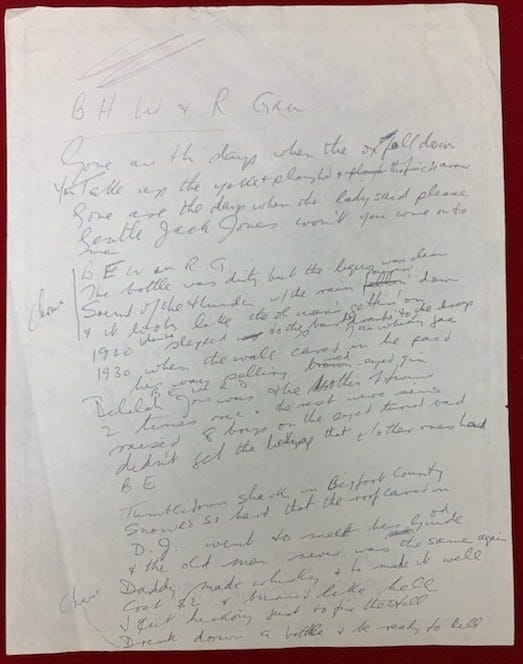 B H W & R Grn
Gone are th days when the ox fall down
You Take up the yoke & plough the fields around
Gone are the days when the lady said please
Gentle Jack Jones won't you come onto
me
Chorus
B E W an R G
The bottle was dusty but the liquor was clean
Sound of the thunder w/ the rain down
& it looks like the old man's gettin' on
1920 stepped to the bar to the
1930 when the wall caved in he paid
his way selling eyed gin
Delilah Jones was the Mother of twins
2 times over & the rest were sins
raised 8 boys only I turned bad
didn't get the that other ones had
B E
Tumbledown shack in Bigfoot County
Snowed so hard that the roof caved in
D.J. went to meet her God
& the old man never was the same again
Chorus
Daddy made whisky & he made it well
Cost $2 & burned like hell
I cut hickory just to fire the still
Drink down a bottle & be ready to kill